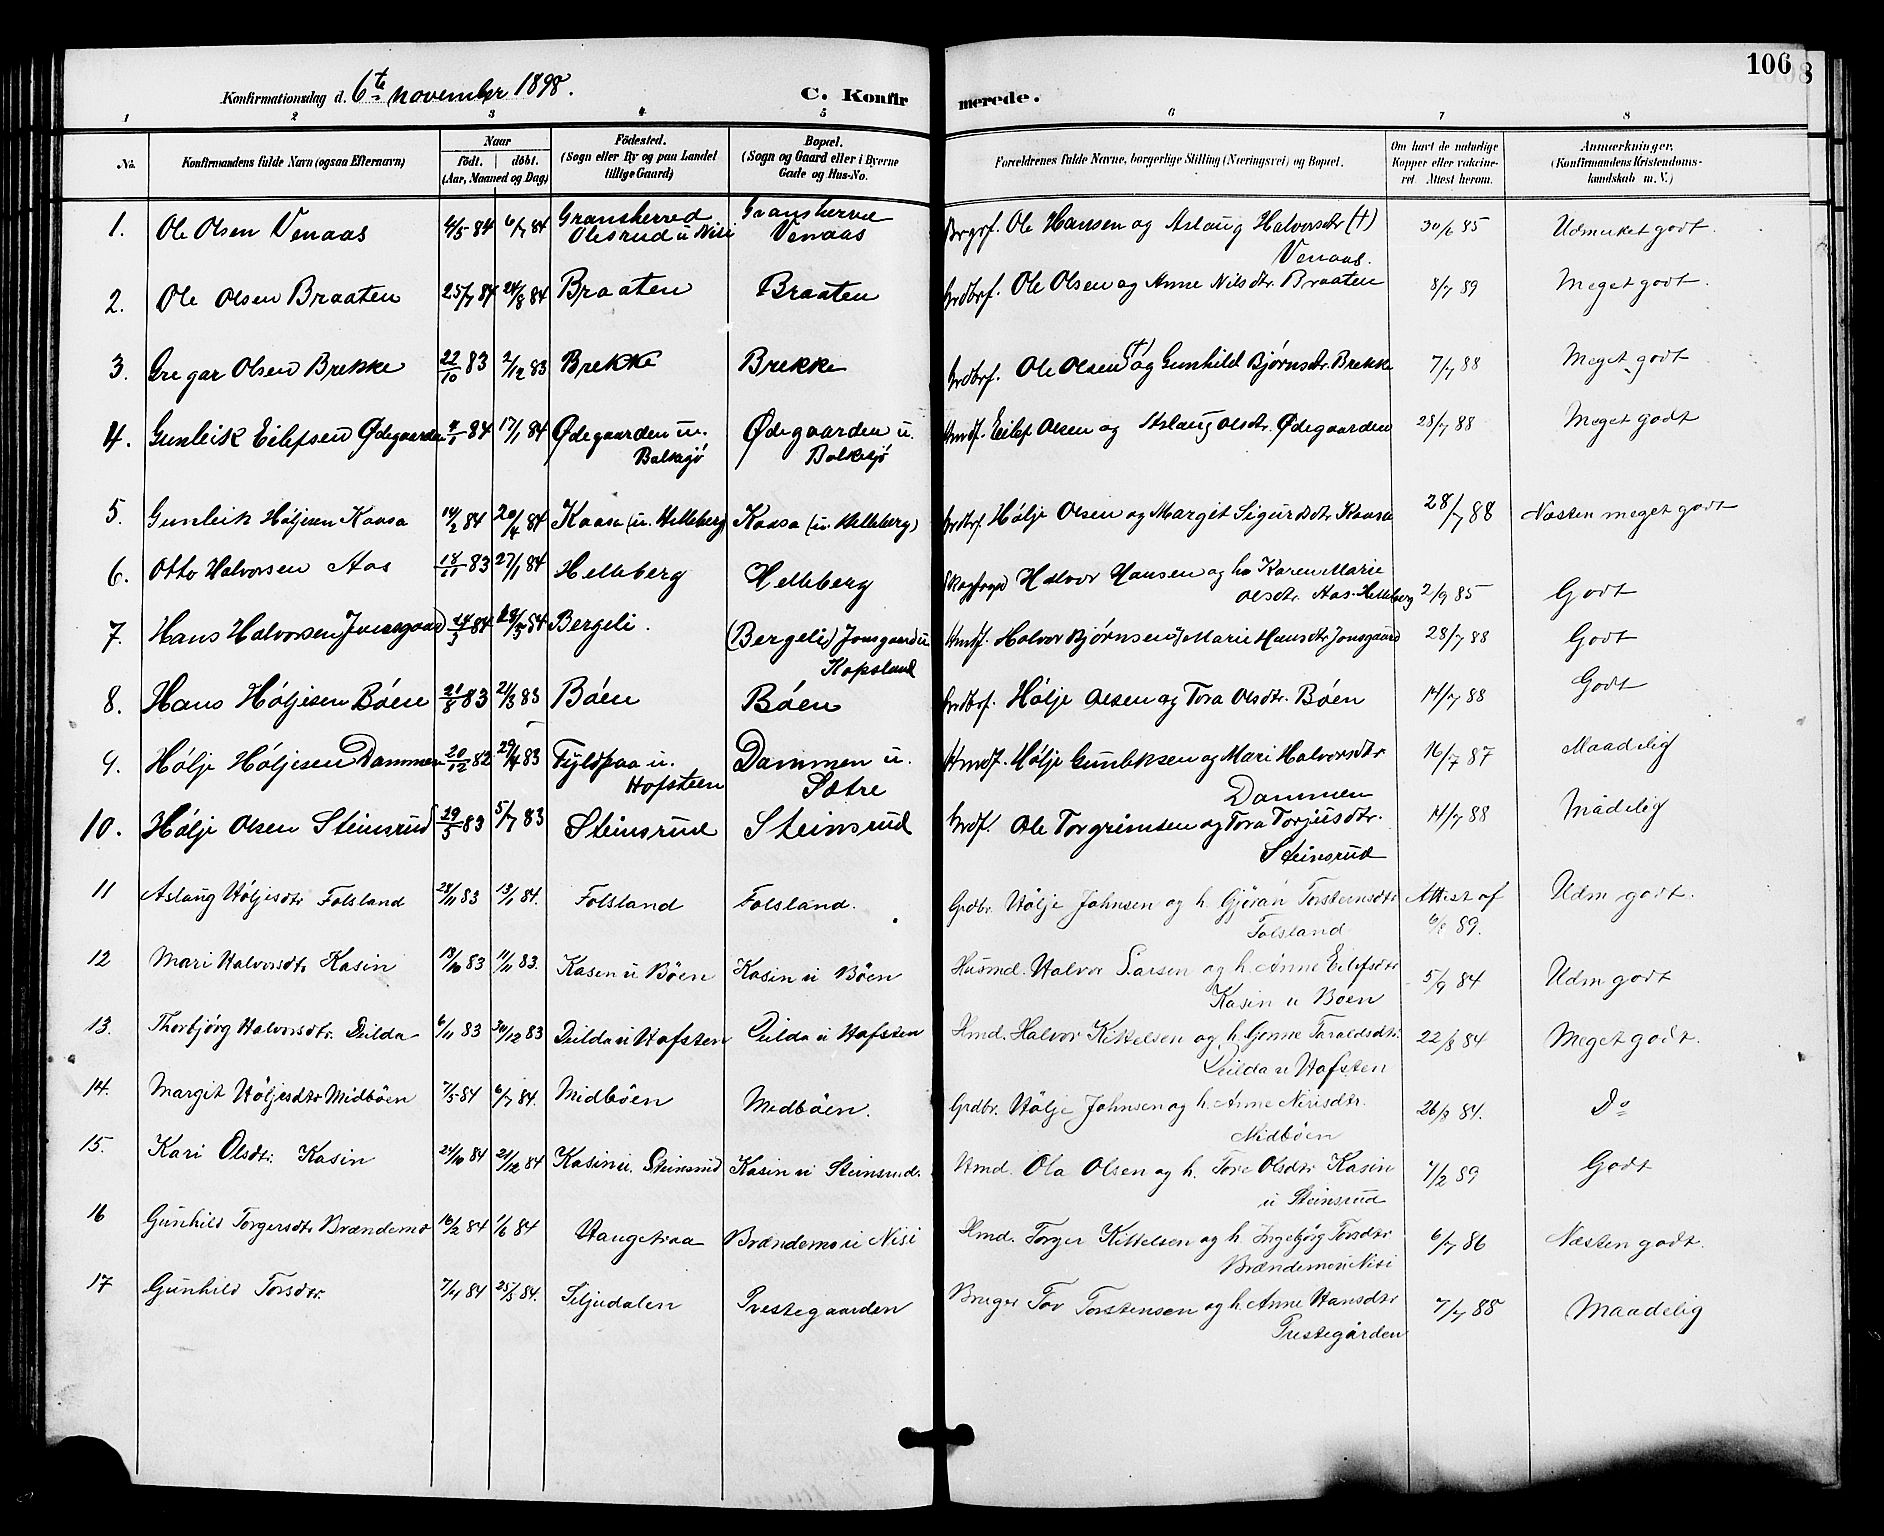 106
Konfirmationsdag d. 6te november 1898. C. Konfirmerede.
1 2 3 4 5 6 7 8
No. Konfirmandens fulde Navn (ogsaa Efternavn) Naar födt. döbt. (Aar, Maaned og Dag) Födested. (Sogn eller By og paa Landet tillige Gaard) Bopæl. (Sogn og Gaard eller i Byerne Gade og Hus-No. Forældrenes fulde Navne, borgerlige Stilling (Næringsvei) og Bopæl. Om havt de naturlige Kopper eller vaccineret. Attest herom. Anmerkninger. (Konfirmandens Kristendomskundskab m. V.)
1. Ole Olsen Venaas 4/5 84 6/7 84 Gransherred Olesrud u Nisi Gransherred Venaas Ole Hansen og Aslaug Halvorsdtr (†) Venaas. 30/6 85 Udmerket godt.
2. Ole Olsen Braaten 25/7 84 24/8 84 Braaten Braaten Grdbrf. Ole Olsen og Anne Nilsdtr. Braaten 8/7 89 Meget godt.
3. Gregar Olsen Brekke 22/10 83 2/12 83 Brekke Brekke Grdbrf. Ole Olsen (†) og Gunhild Bjørnsdtr. Brekke 7/7 88 Meget godt
4. Gunleik Eilefsen Ødegaarden 84 17/1 84 Ødegaarden u. Bolkesjö Ødegaarden u. Bolkesjö Hmdf. Eilef Olsen og Aslaug Olsdtr. Ødegaarden 28/7 88 Meget godt
5. Gunleik Høljesen Kaasa 14/2 84 20/4 84 Kaasa (u. Helleberg) Kaasa (u. Helleberg) Grdbrf Hølje Olsen og Margit Sigurdsdtr Kaasa 28/7 88 Næsten meget godt
6. Otto Halvorsen Aas 18/11 83 27/1 84 Helleberg Helleberg Halvor Hansen og h. Karen Marie Olsdtr. Aas-Helleberg 2/9 85 Godt
7. Hans Halvorsen Jonsgaard 84 84 Bergeli. (Bergeli) Jonsgaard u Kopsland Hmdf. Halvor Bjørnsen og Marie Hansdtr Jonsgaard 28/7 88 Godt
8. Hans Høljesen Böen 83 83 Böen Böen Grdbrf. Hølje Olsen og Tora Olsdtr. Böen 14/7 88 Godt
9. Hølje Høljesen Dammen 20/12 82 29/4 83 Fyldpaa u. Hofsteen Dammen u. Sætre Hmdf. Hølje Gunleksen og Mari Halvorsdtr Dammen 16/7 87 Maadelig
10. Hølje Olsen Steinsrud 29/5 83 5/7 83 Steinsrud Steinsrud Ole Torgrimsen og Tora Torjusdtr. Steinsrud 14/7 88 Mådelig
11 Aslaug Höljesdtr Folsland 28/11 83 13/1 84. Folsland Folsland. Grdbr. Hölje Johnsen og h. Gjöran Torsteinsdtr Folsland Attest af 6/8 89. Udm godt.
12 Mari Halvorsdtr Kasin 13/10 83 11/11 83. Kasen u Böen Kasin u Böen Husmd. Halvor Larsen og h. Anne Eilefsdtr Kasin u Böen 5/9 84 Udm godt
13. Thorbjörg Halvorsdtr. Deilda 6/11 83 30/12 83 Deilda u Hofsten Deilda u Hofsten Hmd. Halvor Kittelsen og h. Gunne Taraldsdtr. Deilda u Hofsten 22/8 84 Meget godt.
14. Margit Höljesdtr Midböen 7/5 84 6/7 84. Midböen Midböen. Grdbr. Hölje Johnsen og h. Anne Nirisdtr. Midböen 26/8 84. Do
15. Kari Olsdtr. Kasin 24/10 84 21/12 84 Kasin u. Steinsrud Kasin u Steinsrud. Hmd. Ola Olsen og h. Tore Olsdtr Kasin u Steinsrud 7/2 89 Godt
16 Gunhild Torgersdtr Brændemo 16/2 84 1/6 84 Haugetraa Brændemo u Nisi Hmd. Torger Kittelsen og h. Ingebjörg Torsdtr Brændemo u Nisi 6/7 86 Næsten godt.
17 Gunhild Torsdtr. 7/4 84 25/5 84. Siljudalen Prestegaarden Bruger Tov Torstensen og h. Anne Hansdtr Prestegården 7/7 88 Maadelig